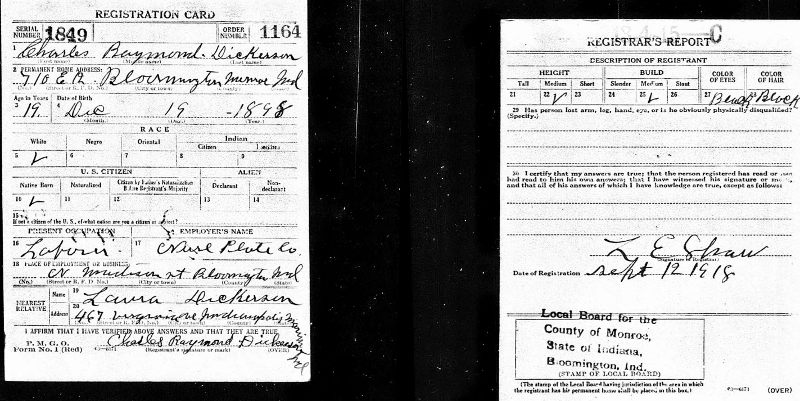 REGISTRATION CARD
SERIAL NUMBER 1849 ORDER NUMBER 1164
1 Charles Raymond Dickerson
(First name) (Middle name) (Last name)
2 PERMANENT HOME ADDRESS:
710 E Bloomington Monroe Ind
(No.) (Street or R. F. D. No.) (City or town) (County) (State)
Age in Years Date of Birth
3 19 4 Dec 19 -1898
(Month.) (Day.) (Year.)
RACE
White Negro Oriental Indian
Citizen
5 ✓ 6 7 8 9
U. S. CITIZEN ALIEN
Native Born Naturalized Citizen by Father's Naturalization Before Registrant's Majority Declarant Non-declarant
10 ✓ 11 12 13 14
15
If not a citizen of the U. S., of what nation are you a citizen or subject?
PRESENT OCCUPATION EMPLOYER'S NAME
16 17
18 PLACE OF EMPLOYMENT OR BUSINESS
N. Madison st Bloomington Ind
(No.) (Street or R. F. D. No.) (City or town) (County) (State)
NEAREST RELATIVE Name 19 Laura Dickerson
Address 20 467 Indianapolis
(No.) (Street or R. F. D. No.) (City or town) (County) (State)
I AFFIRM THAT I HAVE VERIFIED ABOVE ANSWERS AND THAT THEY ARE TRUE
P. M. G. O.
Form No. 1 (Red) Charles Raymond Dickerson
(Registrant's signature or mark) (OVER)
C
REGISTRAR'S REPORT
DESCRIPTION OF REGISTRANT
HEIGHT BUILD COLOR OF EYES COLOR OF HAIR
Tall Medium Short Slender Medium Stout
21 22 ✓ 23 24 25 ✓ 26 27 Black 28 Black
29 Has person lost arm, leg, hand, eye, or is he obviously physically disqualified?
(Specify.)
30 I certify that my answers are true; that the person registered has read or has
had read to him his own answers; that I have witnessed his signature or mark,
and that all of his answers of which I have knowledge are true, except as follows:
L E Shaw
(Signature of Registrar)
Date of Registration Sept 12 1918
Local Board for the
County of Monroe,
State of Indiana,
Bloomington, Ind.
(STAMP OF LOCAL BOARD)
(The stamp of the Local Board having jurisdiction of the area in which
the registrant has his permanent home shall be placed in this box.) (OVER)